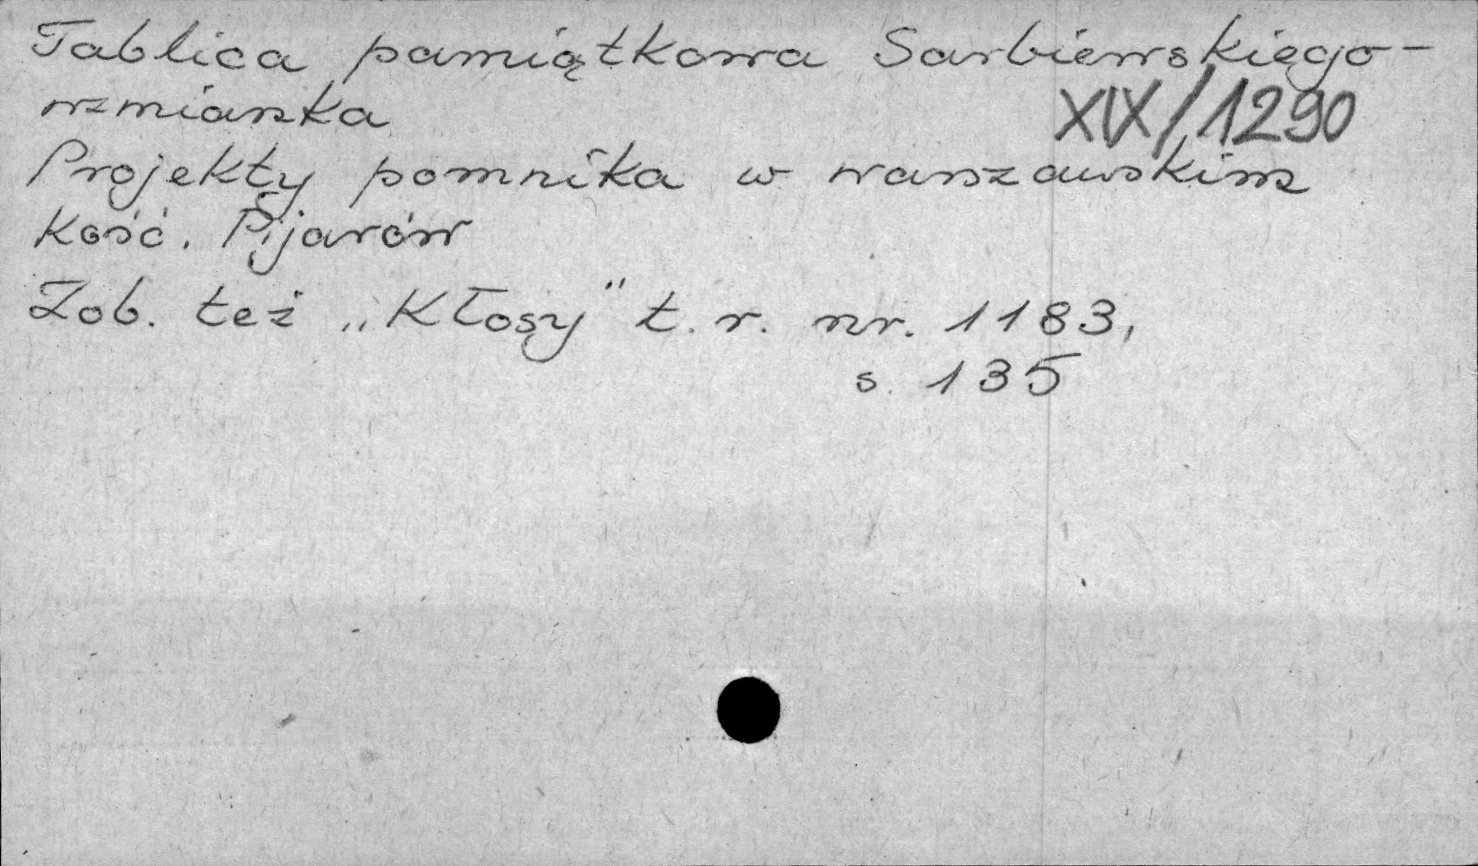 Tablica pamiątkowa Sarbiewskiego -
wzmianka
XIX/1290
Projekty pomnika w warszawskim
Kość. Pijarów
Zob. też „Kłosy" t. r. nr. 1183,
s. 135